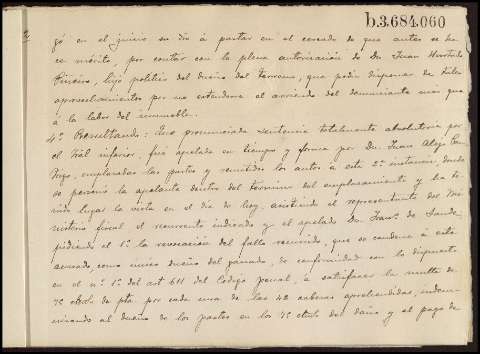 b.3.684.060
2
gó en el juicio su dia á pastar en el cercado de que antes se ha-
ce mérito, por contar con la plena autorización de Dn. Juan Hurtado
hijo politico del dueño del terreno, que podia disponer de tales
aprovechamientos por no estenderse el arriendo del denunciante más que
á la labor del inmueble.
4º Resultando: Que pronunciada sentencia totalmente absolutoria por
el Tral inferior, fué apelada en tiempo y forma por Dn. Juan Alejo
emplazadas las partes y remitidos los autos á esta 2ª instancia, donde
se personó la apelante dentro del termino del emplazamiento y ha te-
nido lugar la vista en el dia de hoy, asistiendo el representante del Mi-
nisterio fiscal, el recurrente indicado y el apelado Dn. Franº de
pidiendo el 1º la revocación del fallo recurrido, que se condene á este
acusado, como único dueño del ganado, de conformidad con lo dispuesto
en el nº 1º del art 611 del Codigo penal, á satisfacer la multa de
75 ctmos de pta por cada una de las 42 cabezas aprehendidas, indem-
nizando al dueño de los pastos en los 75 ctmos del daño y el pago de